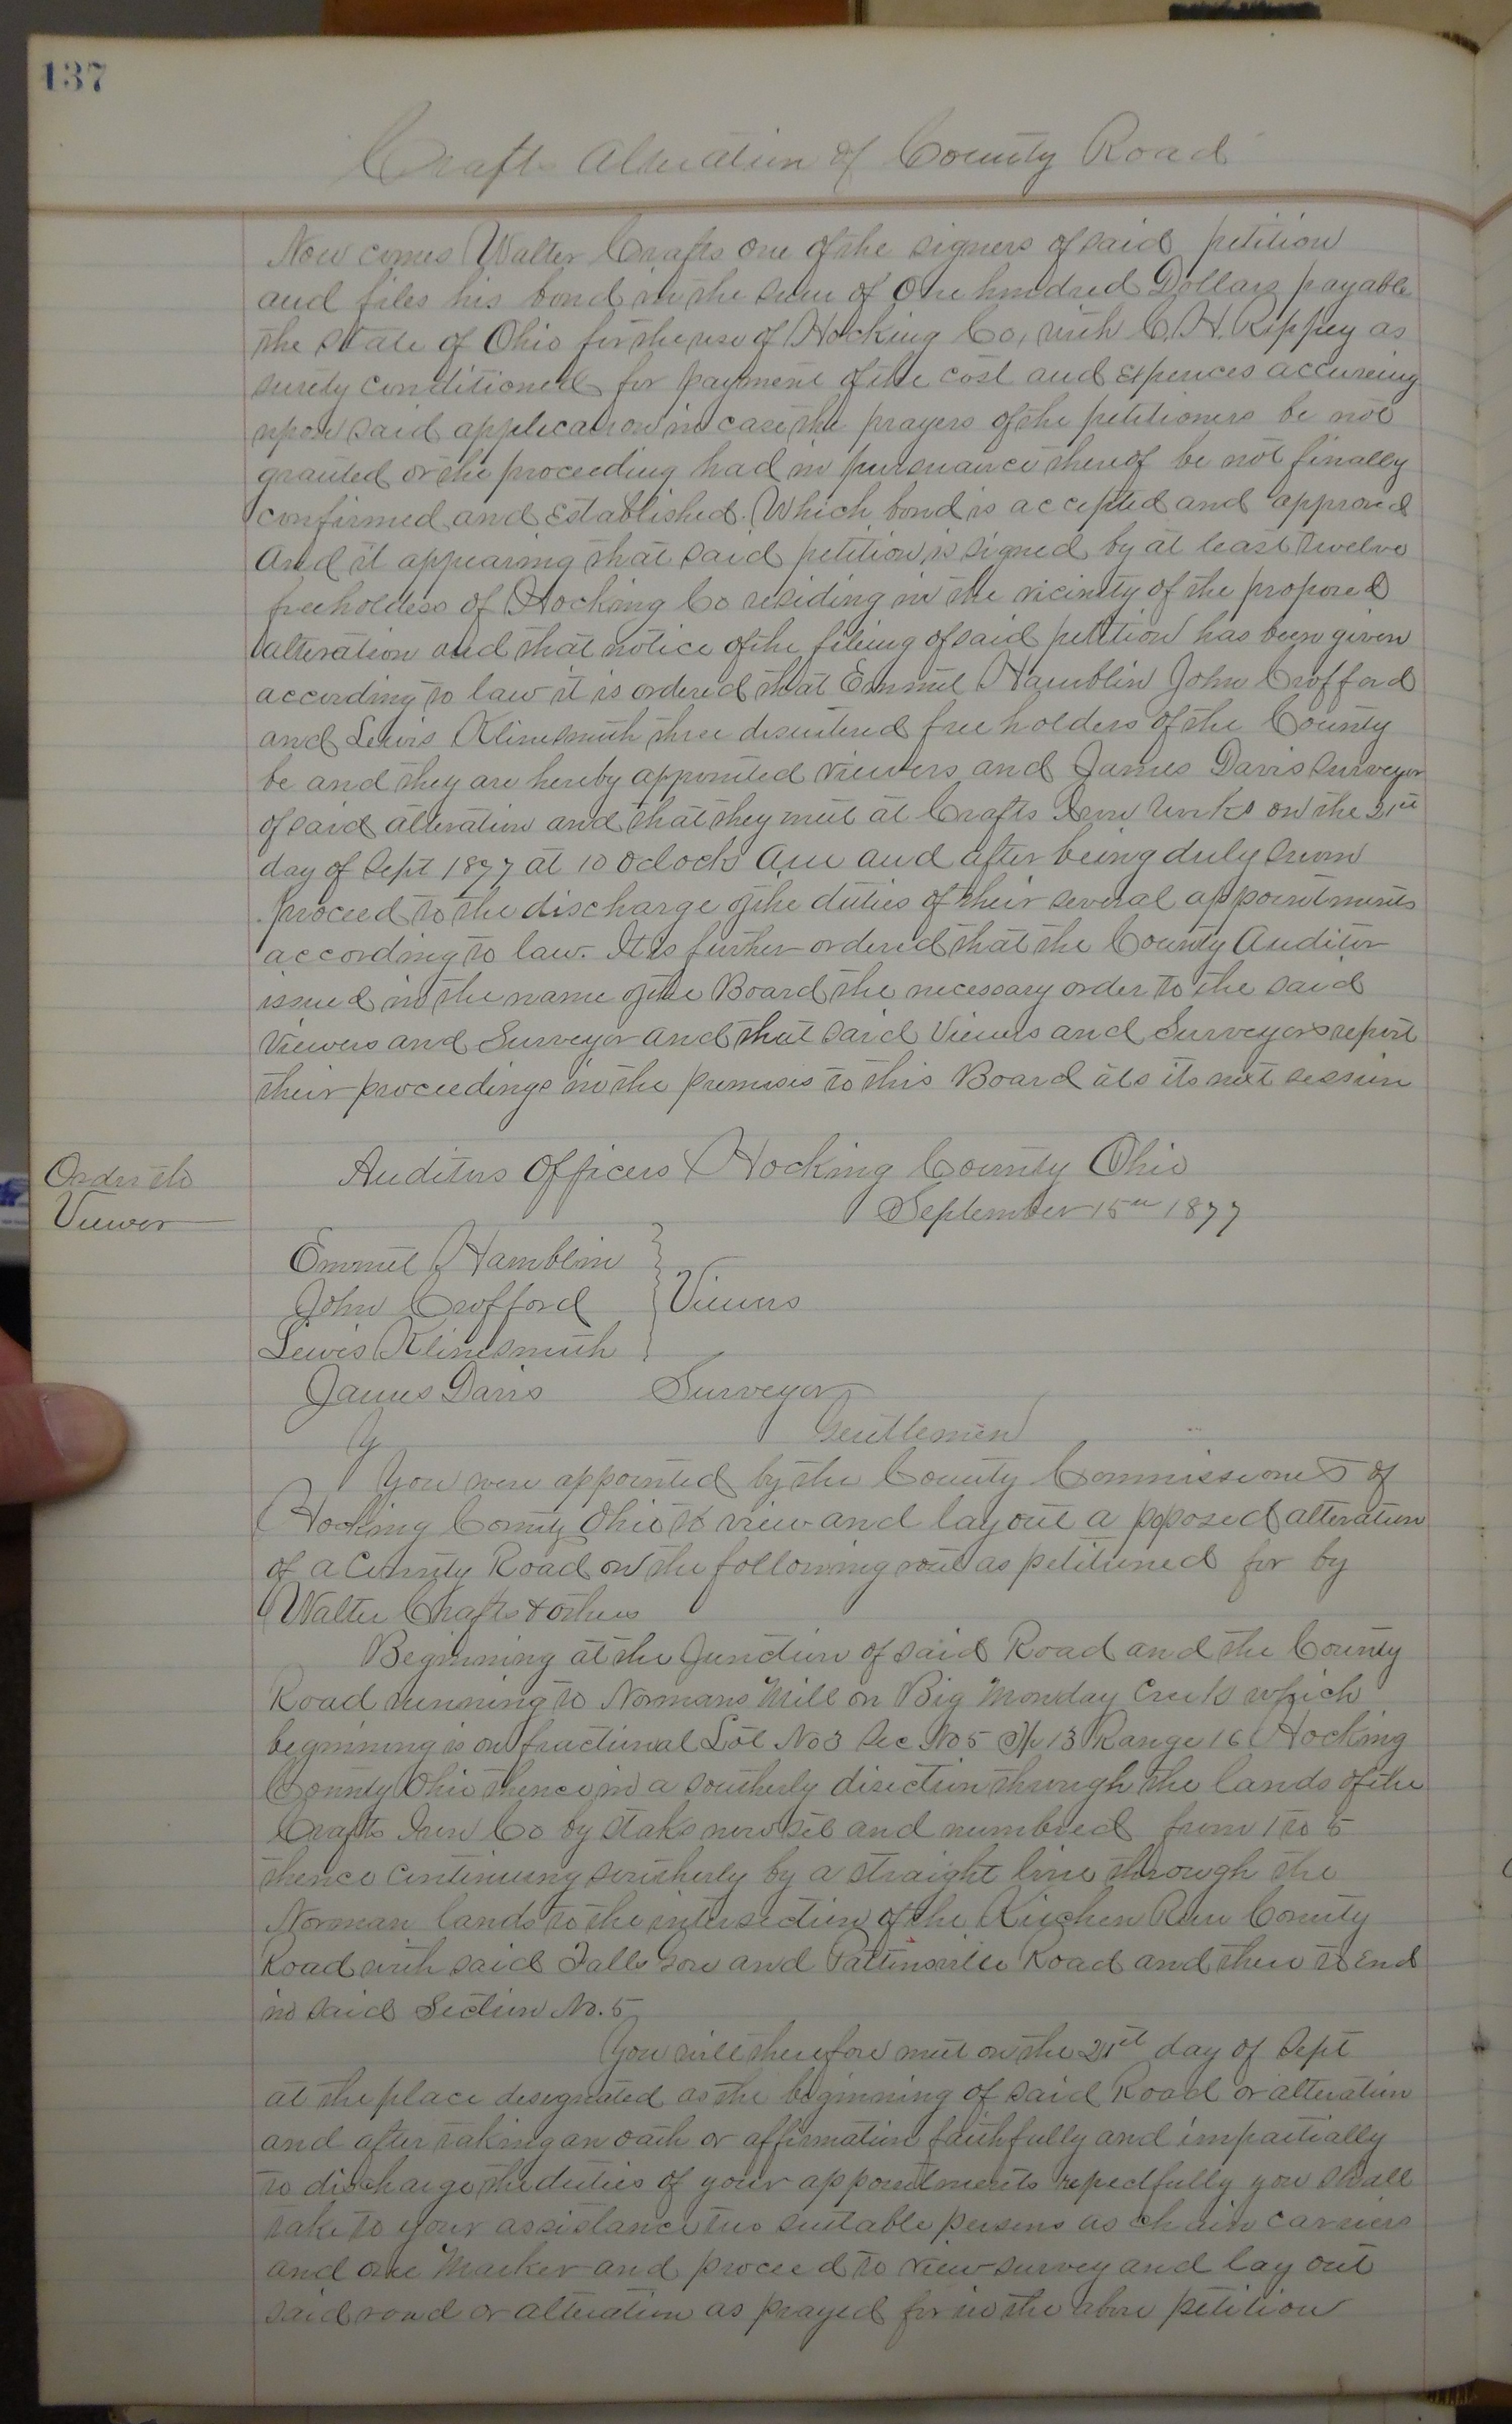 137
Crafts Alteration of County Road
Now comes Walter Crafts one of the signers of said petition
and files his bond in the sum of One hundred Dollars payable
the State of Ohio for the use of Hocking Co, with C. H. Rippey as
surety conditioned for payment of the cost and expences accureing
upon said application in case the prayers of the petitioners be not
granted or the proceeding had in pursuance thereof be not finally
confirmed and established. Which bond is accepted and approved
And it appearing that said petition is signed by at least twelve
freeholders of Hocking Co residing in the vicinity of the proposed
alteration and that notice of the fileing of said petition has been given
according to law it is ordered that Emmit Hamblin John Crofford
and Lewis Klinesmith three disentered free holders of the County
be and they are hereby appointed viewers and James Davis Surveyor
of said alteration and that they meet at Crafts Iron Works on the 21st
day of Sept 1877 at 10 oclock Am and after being duly sworn
proceed to the discharge of the duties of their several appointments
according to law. It is further ordered that the County Auditor
issued in the name of the Board the necessary order to the said
Viewers and Surveyor and that said Viewers and Surveyors report
their proceedings in the premises to this Board ats its next session
Order to
Viewer
Auditors Officers Hocking County Ohio
September 15th 1877
Emmit Hamblin
John Crofford } Viewers
Lewis Klinesmith
James Davis Surveyor
Gentlemen
Y
You were appointed by the County Commissioners of
Hocking County Ohio to view and lay out a poposed alteration
of a County Road on the following rout as petitioned for by
Walter Crafts & others
Beginning at the Junction of said Road and the County
Road running to Normans Mill on Big Monday Creek which
beginning is on fractional Lot No 3 Sec No 5 Tp 13 Range 16 Hocking
County Ohio thence in a southerly direction through the lands of the
Crafts Iron Co by staks now set and numbred from 1 to 5
thence continuing southerly by a straight line through the
Norman lands to the intersection of the Kitchen Run County
Road with said Falls Gore and Pattinsville Road and there to end
in said Section No. 5
You will therefore meet on the 21st day of Sept
at the place designated as the beginning of said Road or alteration
and after taking an oath or affirmation faithfully and impartially
to discharge the duties of your appointments repectfully you shall
take to your assistance two suitable persons as chain carriers
and one Marker and proceed to view survey and lay out
said road or alteration as prayed for in the above petition